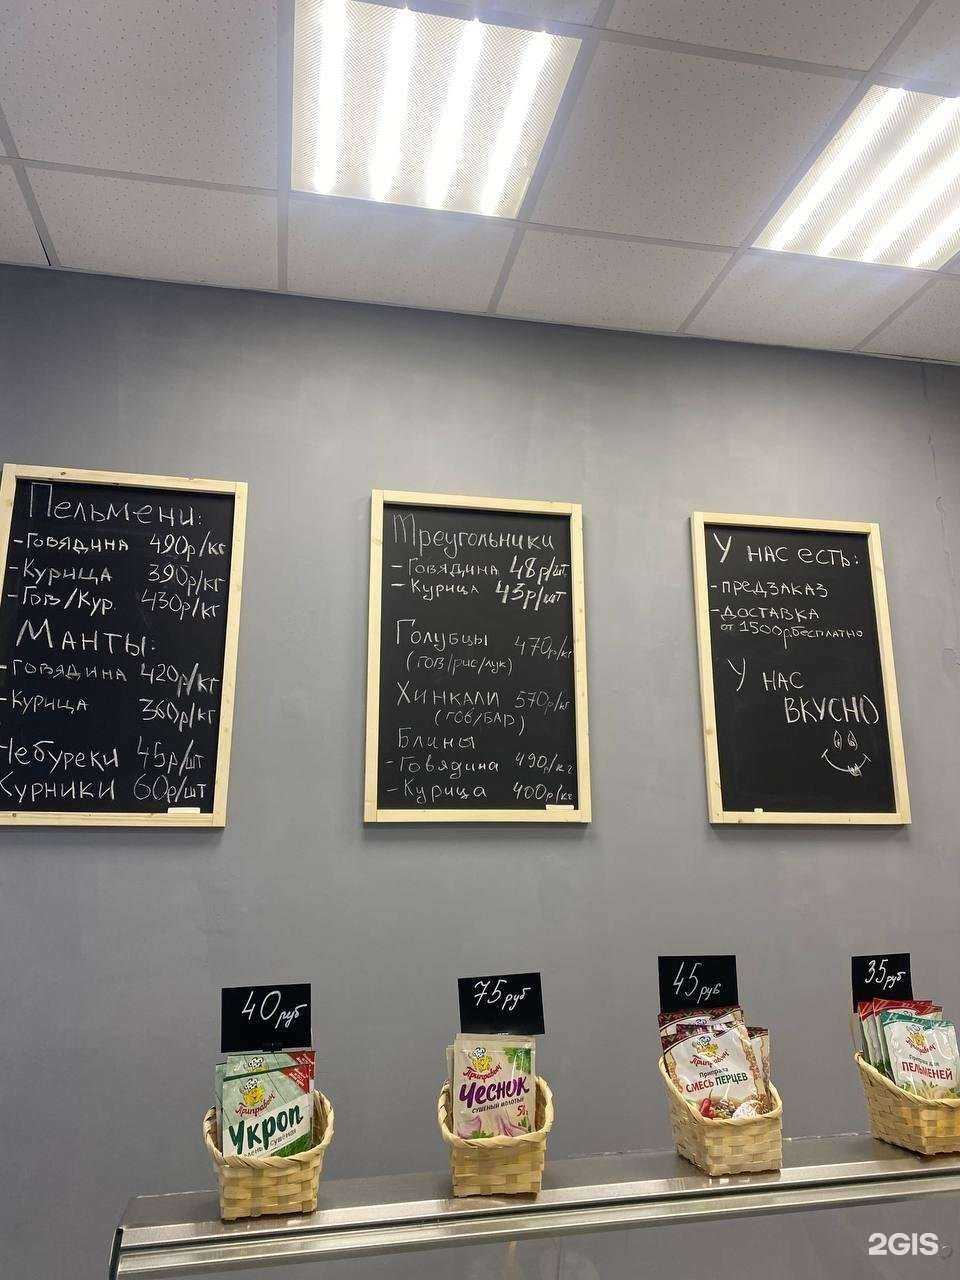 Пельмени:
- Говядина 490р/кг
- Курица 390р/кг
- Гов/Кур. 430р/кг
Манты:
- Говядина 420р/кг
- Курица 360р/кг
Чебуреки 45р/шт
Курники 60р/шт
Треугольники
- Говядина 48р/шт
- Курица 43р/шт
Голубцы 470р/кг
(гов/рис/лук)
Хинкали 570р/кг
(гов/бар)
Блины
- Говядина 490р/кг
- Курица 400р/кг
У нас есть:
- предзаказ
- доставка
от 1500р.бесплатно
У нас
вкусно
40 руб
75 руб
45 руб
35 руб
Приправыч
Укроп
Приправыч
Чеснок
сушеный молотый
Приправыч
Приправа
СМЕСЬ ПЕРЦЕВ
Приправыч
ПЕЛЬМЕНЕЙ
2GIS